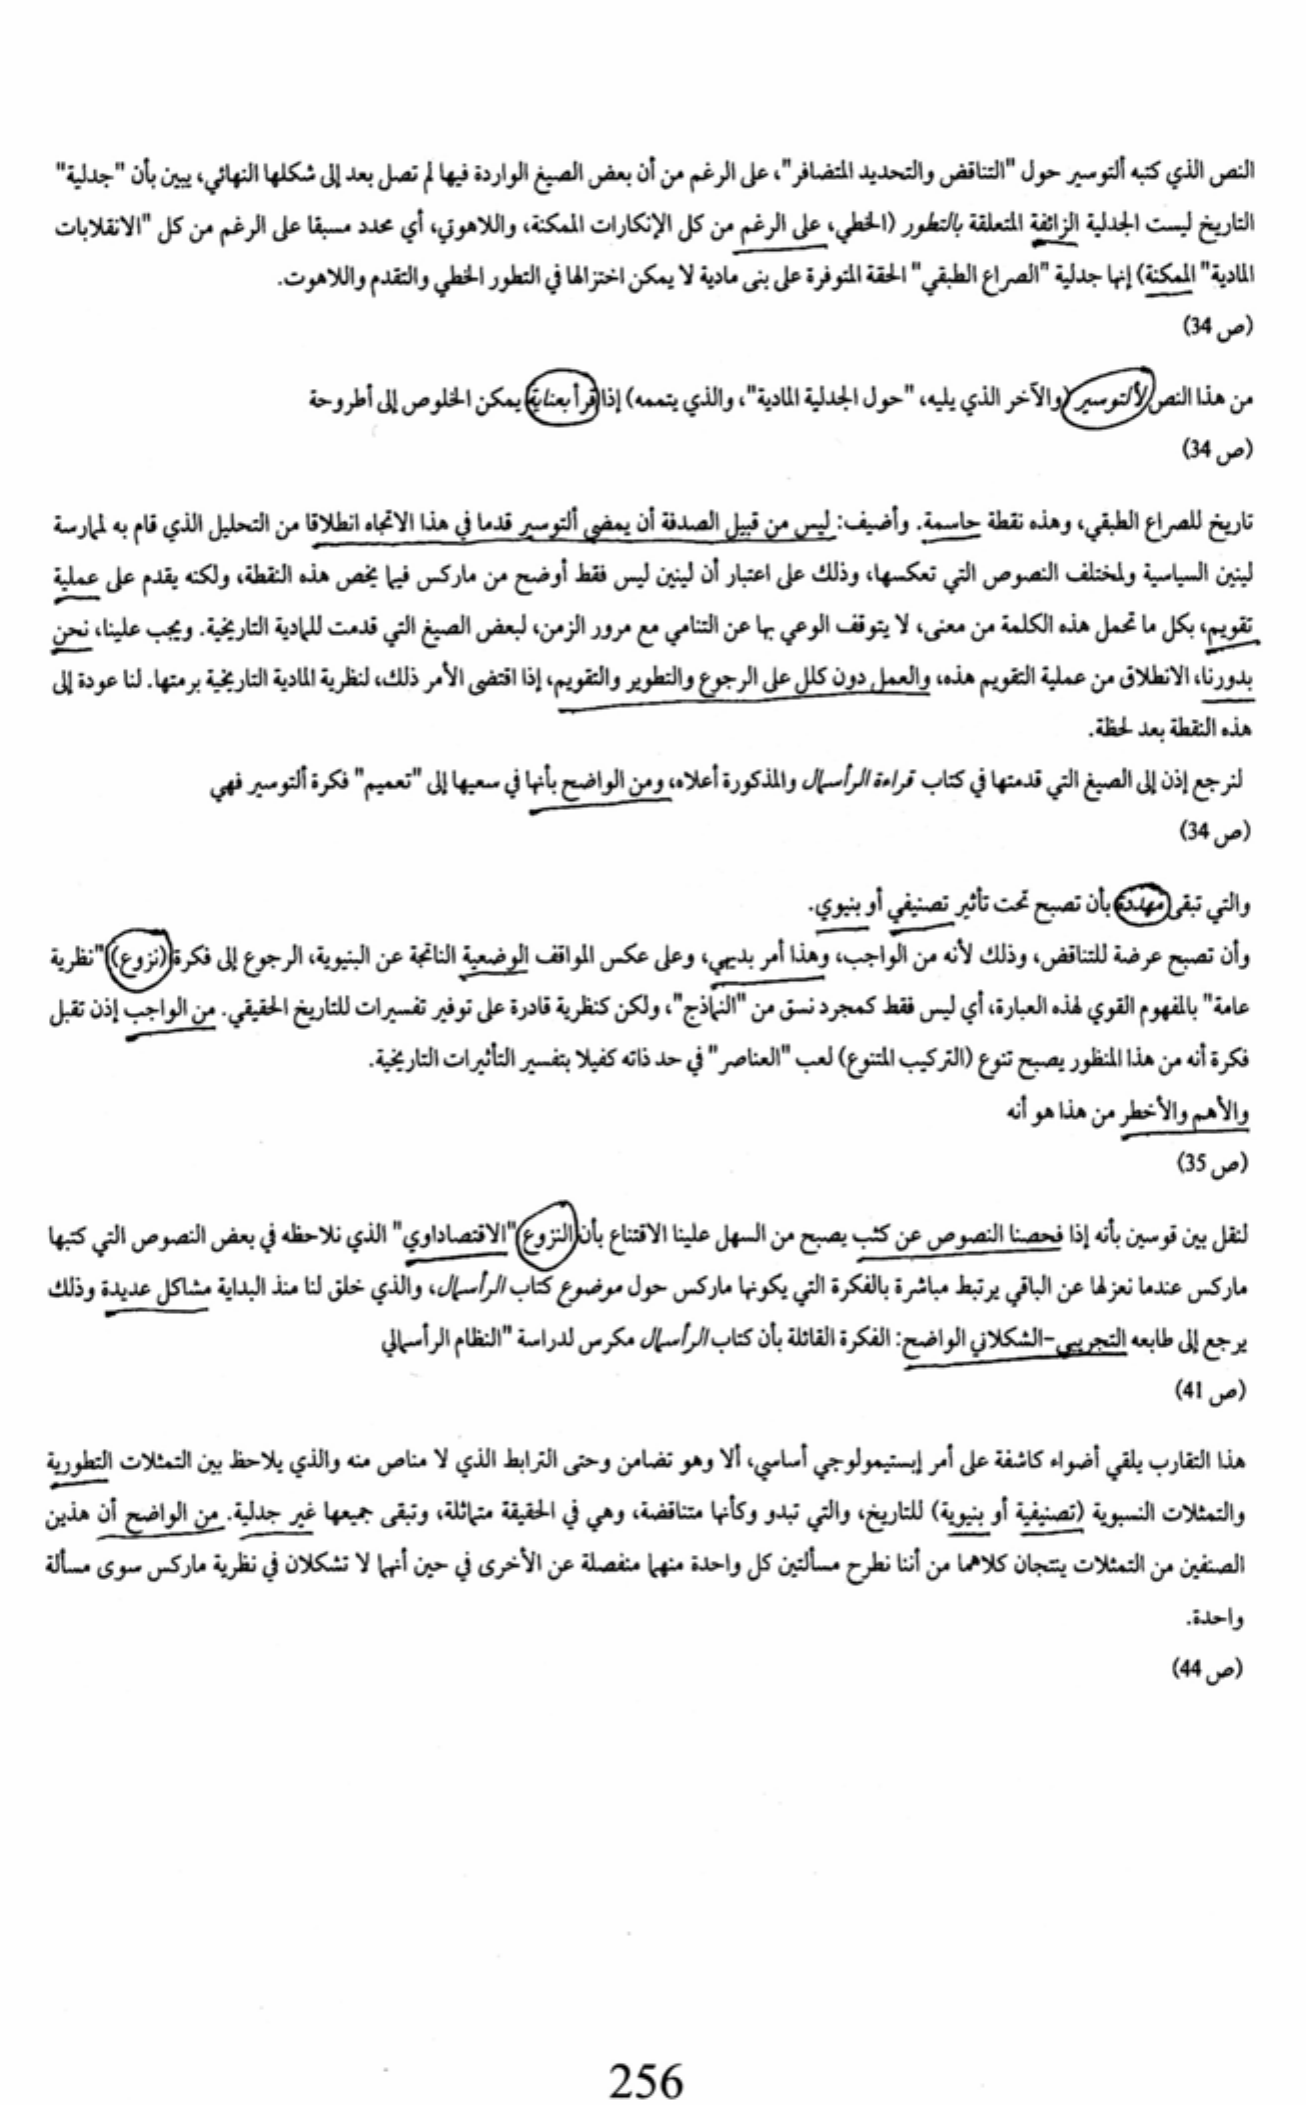 النص الذي كتبه ألتوسير حول "التناقض والتحديد المتضافر"، على الرغم من أن بعض الصيغ الواردة فيها لم تصل بعد إلى شكلها النهائي، يبين بأن "جدلية"
التاريخ ليست الجدلية الزائفة المتعلقة بالتطور (الخطي، على الرغم من كل الإنكارات الممكنة، واللاهوتي، أي محدد مسبقا على الرغم من كل "الانقلابات
المادية" الممكنة) إنها جدلية "الصراع الطبقي" الحقة المتوفرة على بنى مادية لا يمكن اختزالها في التطور الخطي والتقدم واللاهوت.
(ص 34)
من هذا النص لألتوسير (والآخر الذي يليه، "حول الجدلية المادية"، والذي يتممه) إذا قرأ بعناية يمكن الخلوص إلى أطروحة
(ص 34)
تاريخ للصراع الطبقي، وهذه نقطة حاسمة. وأضيف: ليس من قبيل الصدفة أن يمضي ألتوسير قدما في هذا الاتجاه انطلاقا من التحليل الذي قام به لممارسة
لينين السياسية ولمختلف النصوص التي تعكسها، وذلك على اعتبار أن لينين ليس فقط أوضح من ماركس فيما يخص هذه النقطة، ولكنه يقدم على عملية
تقويم، بكل ما تحمل هذه الكلمة من معنى، لا يتوقف الوعي بها عن التنامي مع مرور الزمن، لبعض الصيغ التي قدمت للمادية التاريخية. ويجب علينا، نحن
بدورنا، الانطلاق من عملية التقويم هذه، والعمل دون كلل على الرجوع والتطوير والتقويم، إذا اقتضى الأمر ذلك، لنظرية المادية التاريخية برمتها. لنا عودة إلى
هذه النقطة بعد لحظة.
لنرجع إذن إلى الصيغ التي قدمتها في كتاب قراءة الرأسمال والمذكورة أعلاه، ومن الواضح بأنها في سعيها إلى "تعميم" فكرة ألتوسير فهي
(ص 34)
والتي تبقى مهددة بأن تصبح تحت تأثير تصنيفي أو بنيوي.
وأن تصبح عرضة للتناقض، وذلك لأنه من الواجب، وهذا أمر بديهي، وعلى عكس المواقف الوضعية الناتجة عن البنيوية، الرجوع إلى فكرة (نزوع) "نظرية
عامة" بالمفهوم القوي لهذه العبارة، أي ليس فقط كمجرد نسق من "النماذج"، ولكن كنظرية قادرة على توفير تفسيرات للتاريخ الحقيقي. من الواجب إذن تقبل
فكرة أنه من هذا المنظور يصبح تنوع (التركيب المتنوع) لعب "العناصر" في حد ذاته كفيلا بتفسير التأثيرات التاريخية.
والأهم والأخطر من هذا هو أنه
(ص 35)
لنقل بين قوسين بأنه إذا فحصنا النصوص عن كثب يصبح من السهل علينا الاقتناع بأن النزوع "الاقتصاداوي" الذي نلاحظه في بعض النصوص التي كتبها
ماركس عندما نعزلها عن الباقي يرتبط مباشرة بالفكرة التي يكونها ماركس حول موضوع كتاب الرأسمال، والذي خلق لنا منذ البداية مشاكل عديدة وذلك
يرجع إلى طابعه التجريبي-الشكلاني الواضح: الفكرة القائلة بأن كتاب الرأسمال مكرس لدراسة "النظام الرأسمالي
(ص 41)
هذا التقارب يلقي أضواء كاشفة على أمر إبستيمولوجي أساسي، ألا وهو تضامن وحتى الترابط الذي لا مناص منه والذي يلاحظ بين التمثلات التطورية
والتمثلات النسبوية (تصنيفية أو بنيوية) للتاريخ، والتي تبدو وكأنها متناقضة، وهي في الحقيقة متماثلة، وتبقى جميعها غير جدلية. من الواضح أن هذين
الصنفين من التمثلات ينتجان كلاهما من أننا نطرح مسألتين كل واحدة منهما منفصلة عن الأخرى في حين أنهما لا تشكلان في نظرية ماركس سوى مسألة
واحدة.
(ص 44)
256